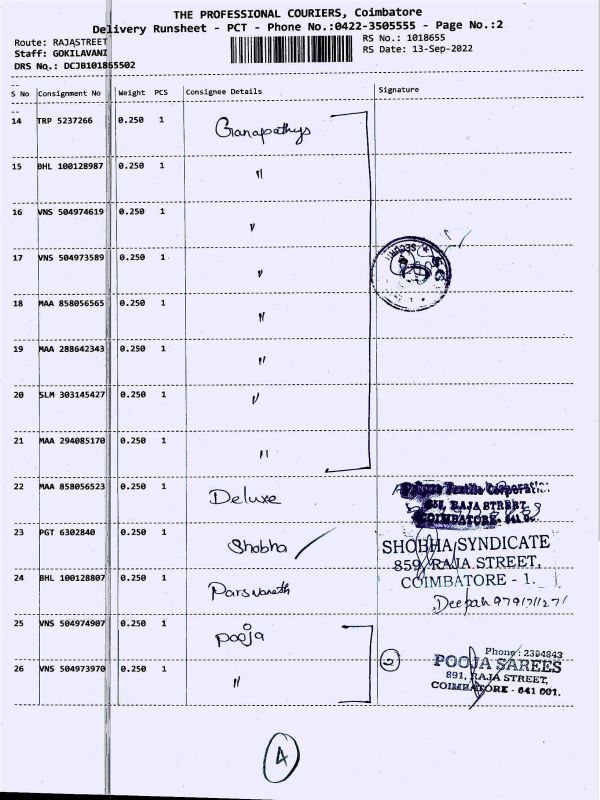 THE PROFESSIONAL COURIERS, Coimbatore
Delivery Runsheet - PCT - Phone No.:0422-3505555 - Page No.:2
Route: RAJASTREET
RS No.: 1018655
Staff: GOKILAVANI
RS Date: 13-Sep-2022
DRS No.: DCJB101865502
S No Consignment No Weight PCS Consignee Details Signature
14 TRP 5237266 0.250 1 Ganapathys
15 BHL 100128987 0.250 1 〃
16 VNS 504974619 0.250 1 〃
17 VNS 504973589 0.250 1 〃
18 MAA 858056565 0.250 1 〃
19 MAA 288642343 0.250 1 〃
20 SLM 303145427 0.250 1 〃
21 MAA 294085170 0.250 1 〃
22 MAA 858056523 0.250 1 Deluxe
Textile Corporation
RAJA STREET
COIMBATORE - 641 001
23 PGT 6302840 0.250 1 Shobha
SHOBHA SYNDICATE
859, RAJA STREET,
COIMBATORE - 1.
24 BHL 100128807 0.250 1 Parsvanath
Deepak 9791711271
25 VNS 504974907 0.250 1 Pooja
26 VNS 504973970 0.250 1 〃
2
Phone : 2394843
POOJA SAREES
891, RAJA STREET,
COIMBATORE - 641 001.
4